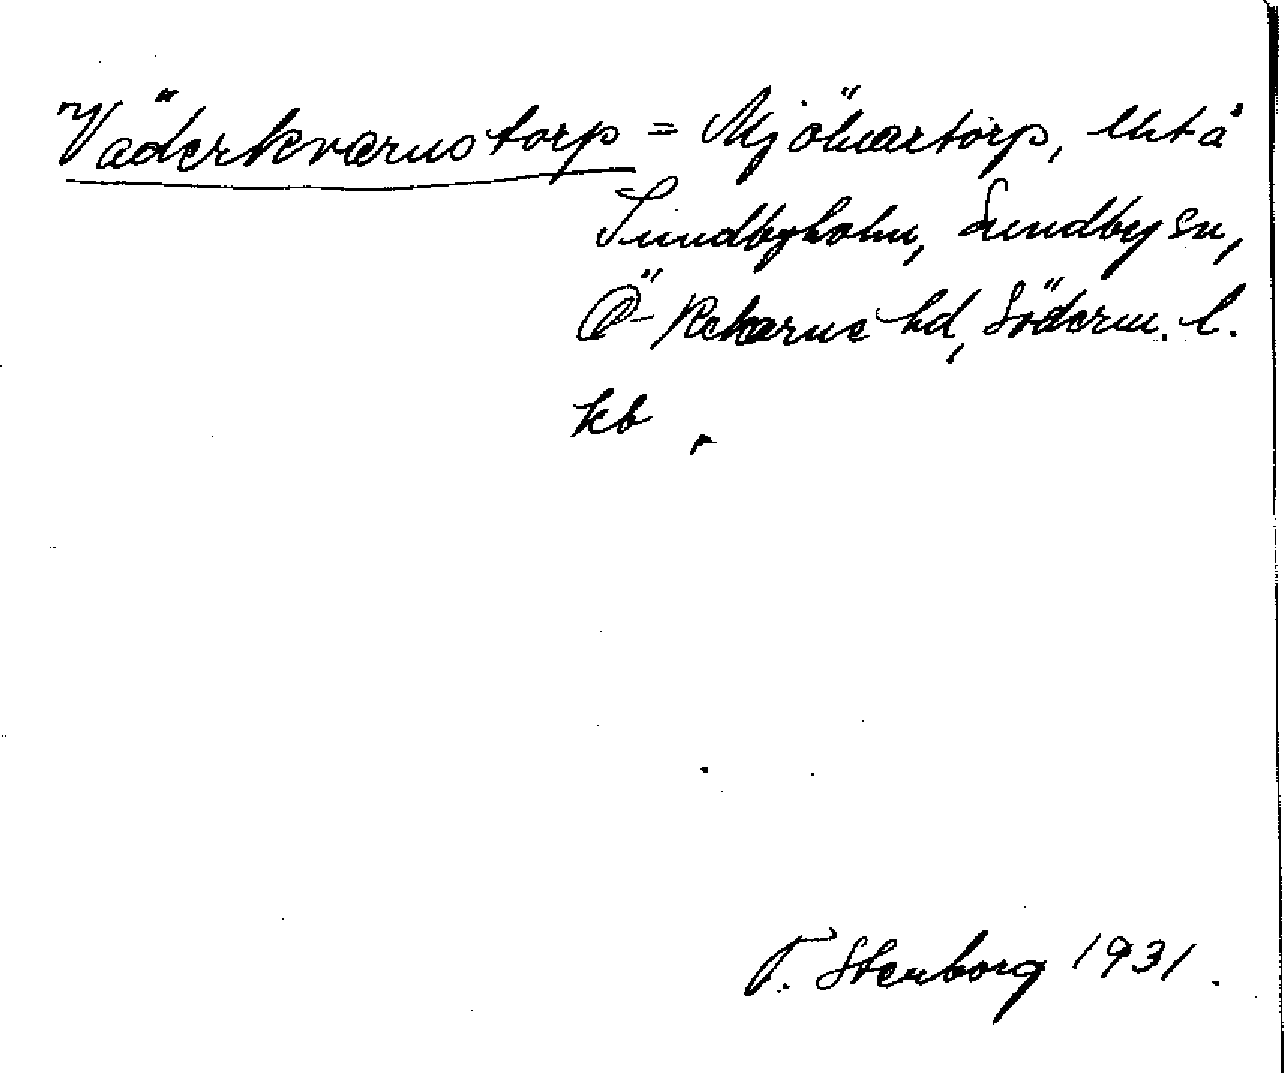 Väderkvarnstorp = Mjölnartorp, lht å
Sundbyholm, Sundby sn,
Ö- Rekarne hd, Söderm. l.
kb
T. Stenborg 1931.